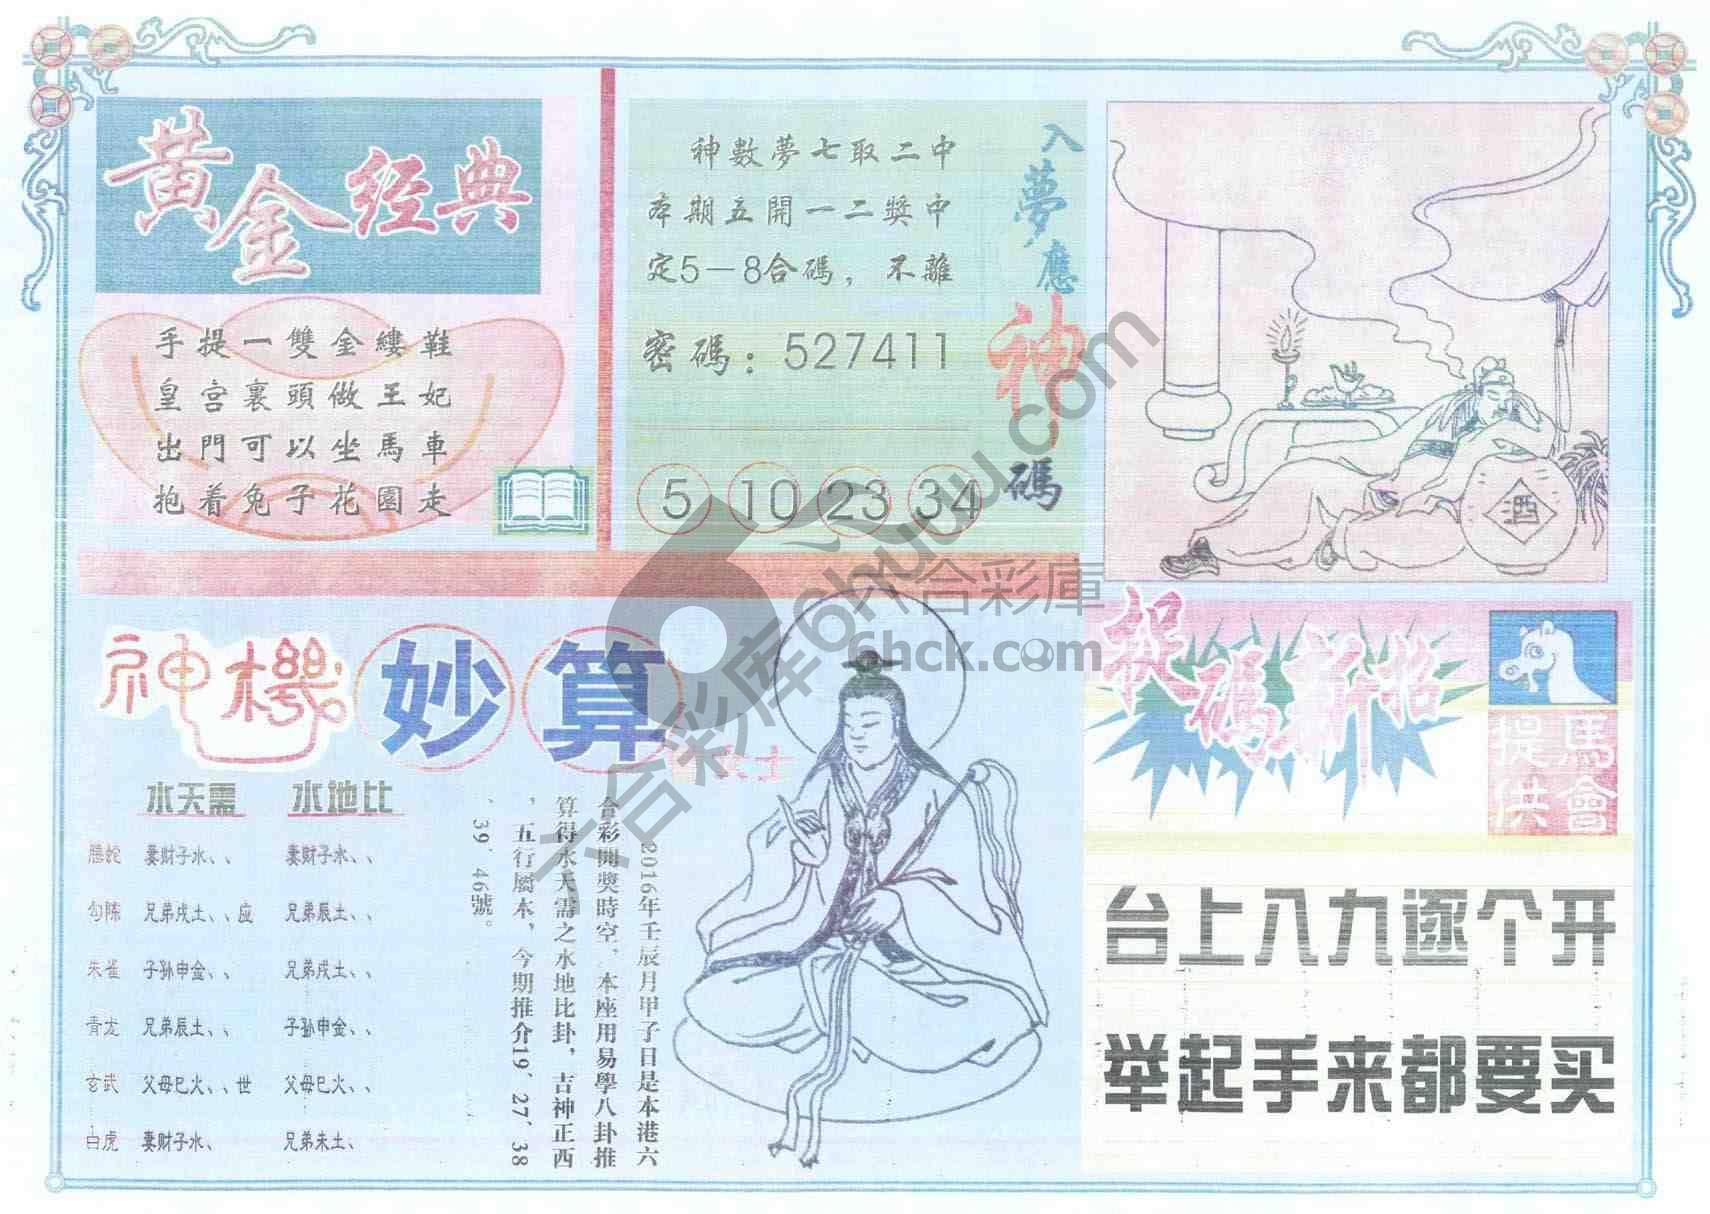 黃金经典
手提一雙金縷鞋
皇宮裏頭做王妃
出門可以坐馬車
抱着兔子花園走
神數夢七取二中
本期五開一二獎中
定5－8合碼，不離
密碼：527411
5 10 23 34
入夢應神碼
酒
神機妙算
水天需 水地比
螣蛇 妻财子水、、 妻财子水、、
勾陈 兄弟戌土、、应 兄弟辰土、、
朱雀 子孙申金、、 兄弟戌土、、
青龙 兄弟辰土、、 子孙申金、、
玄武 父母巳火、、世 父母巳火、、
白虎 妻财子水、 兄弟未土、
2016年壬辰月甲子日是本港六
合彩開獎時空，本座用易學八卦推
算得水天需之水地比卦，吉神正西
，五行屬木，今期推介19、27、38
、39、46號。
六合彩库6huuu.com
六合彩庫
6hck.com
捉碼新招
馬會
提供
台上入九逐个开
举起手来都要买